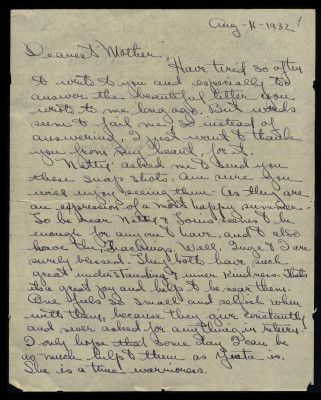 Aug-11-1932
Dearest Mother:
Have tired so often
to write to you and especially to
answer the beautiful letter you
wrote to me long ago. But words
seem to fail me, so instead of
answering, I just want to thank
you from my heart, for it.
"Natty" asked me to send you
these snap shots. Am sure you
will enjoy seeing them. As they are
an expression of a most happy summer.
To be near Natty & Louis Saint be
enough for anyone to have, and to also
have the teachings, well, Inge & I are
surely blessed. They both have such
great understanding & inner kindness. That's
the great joy and help to be near them.
One feels so small and selfish when
with them, because they give constantly
and never asked for anything in return.
I only hope that some day I can be
as much help to them as is.
She is a true